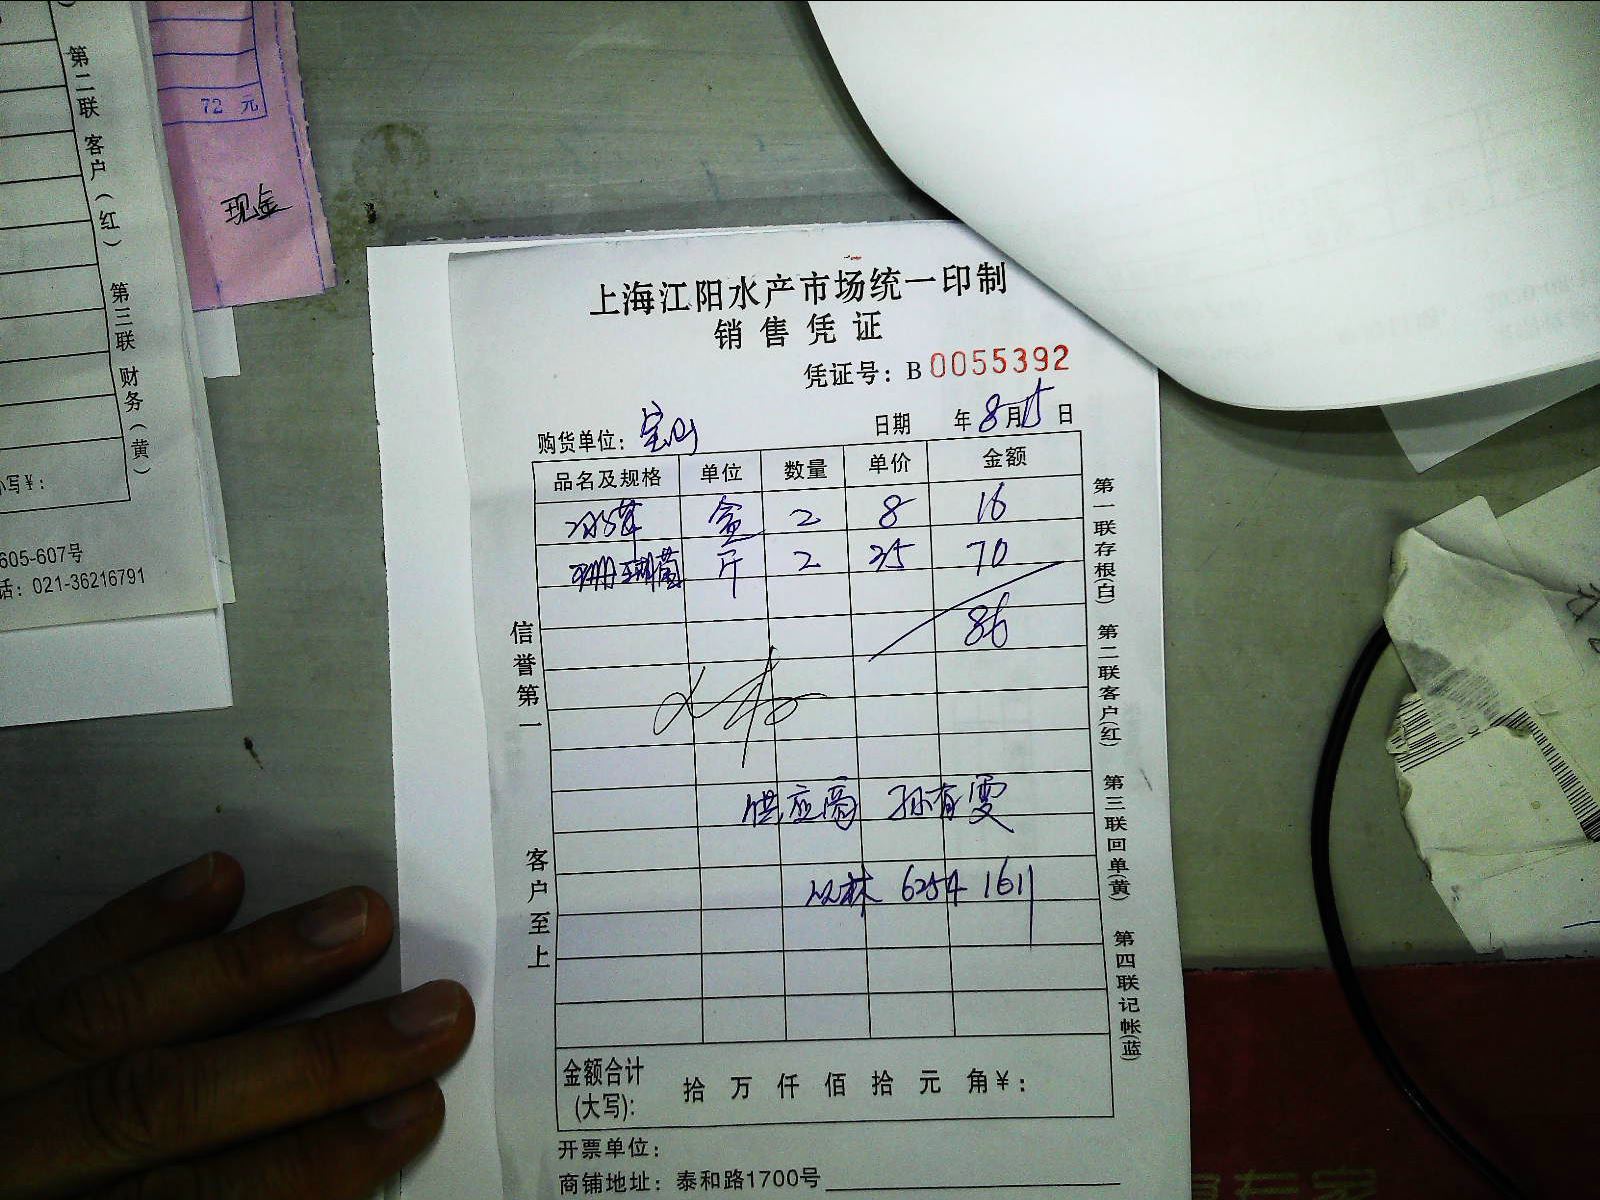 第二联 客户(红) 第三联 财务(黄)
72 元
现金
605-607号
话: 021-36216791
上海江阳水产市场统一印制
销售凭证
凭证号: B 0055392
购货单位: 宝山 日期 年 8 月 15 日
品名及规格 单位 数量 单价 金额
盒 2 8 16
珊瑚菌 斤 2 35 70
86
供应商 孙有雯
6254 1611
信誉第一 客户至上
第一联存根(白) 第二联客户(红) 第三联回单(黄) 第四联记帐(蓝)
金额合计(大写): 拾 万 仟 佰 拾 元 角 ¥:
开票单位:
商铺地址: 泰和路1700号